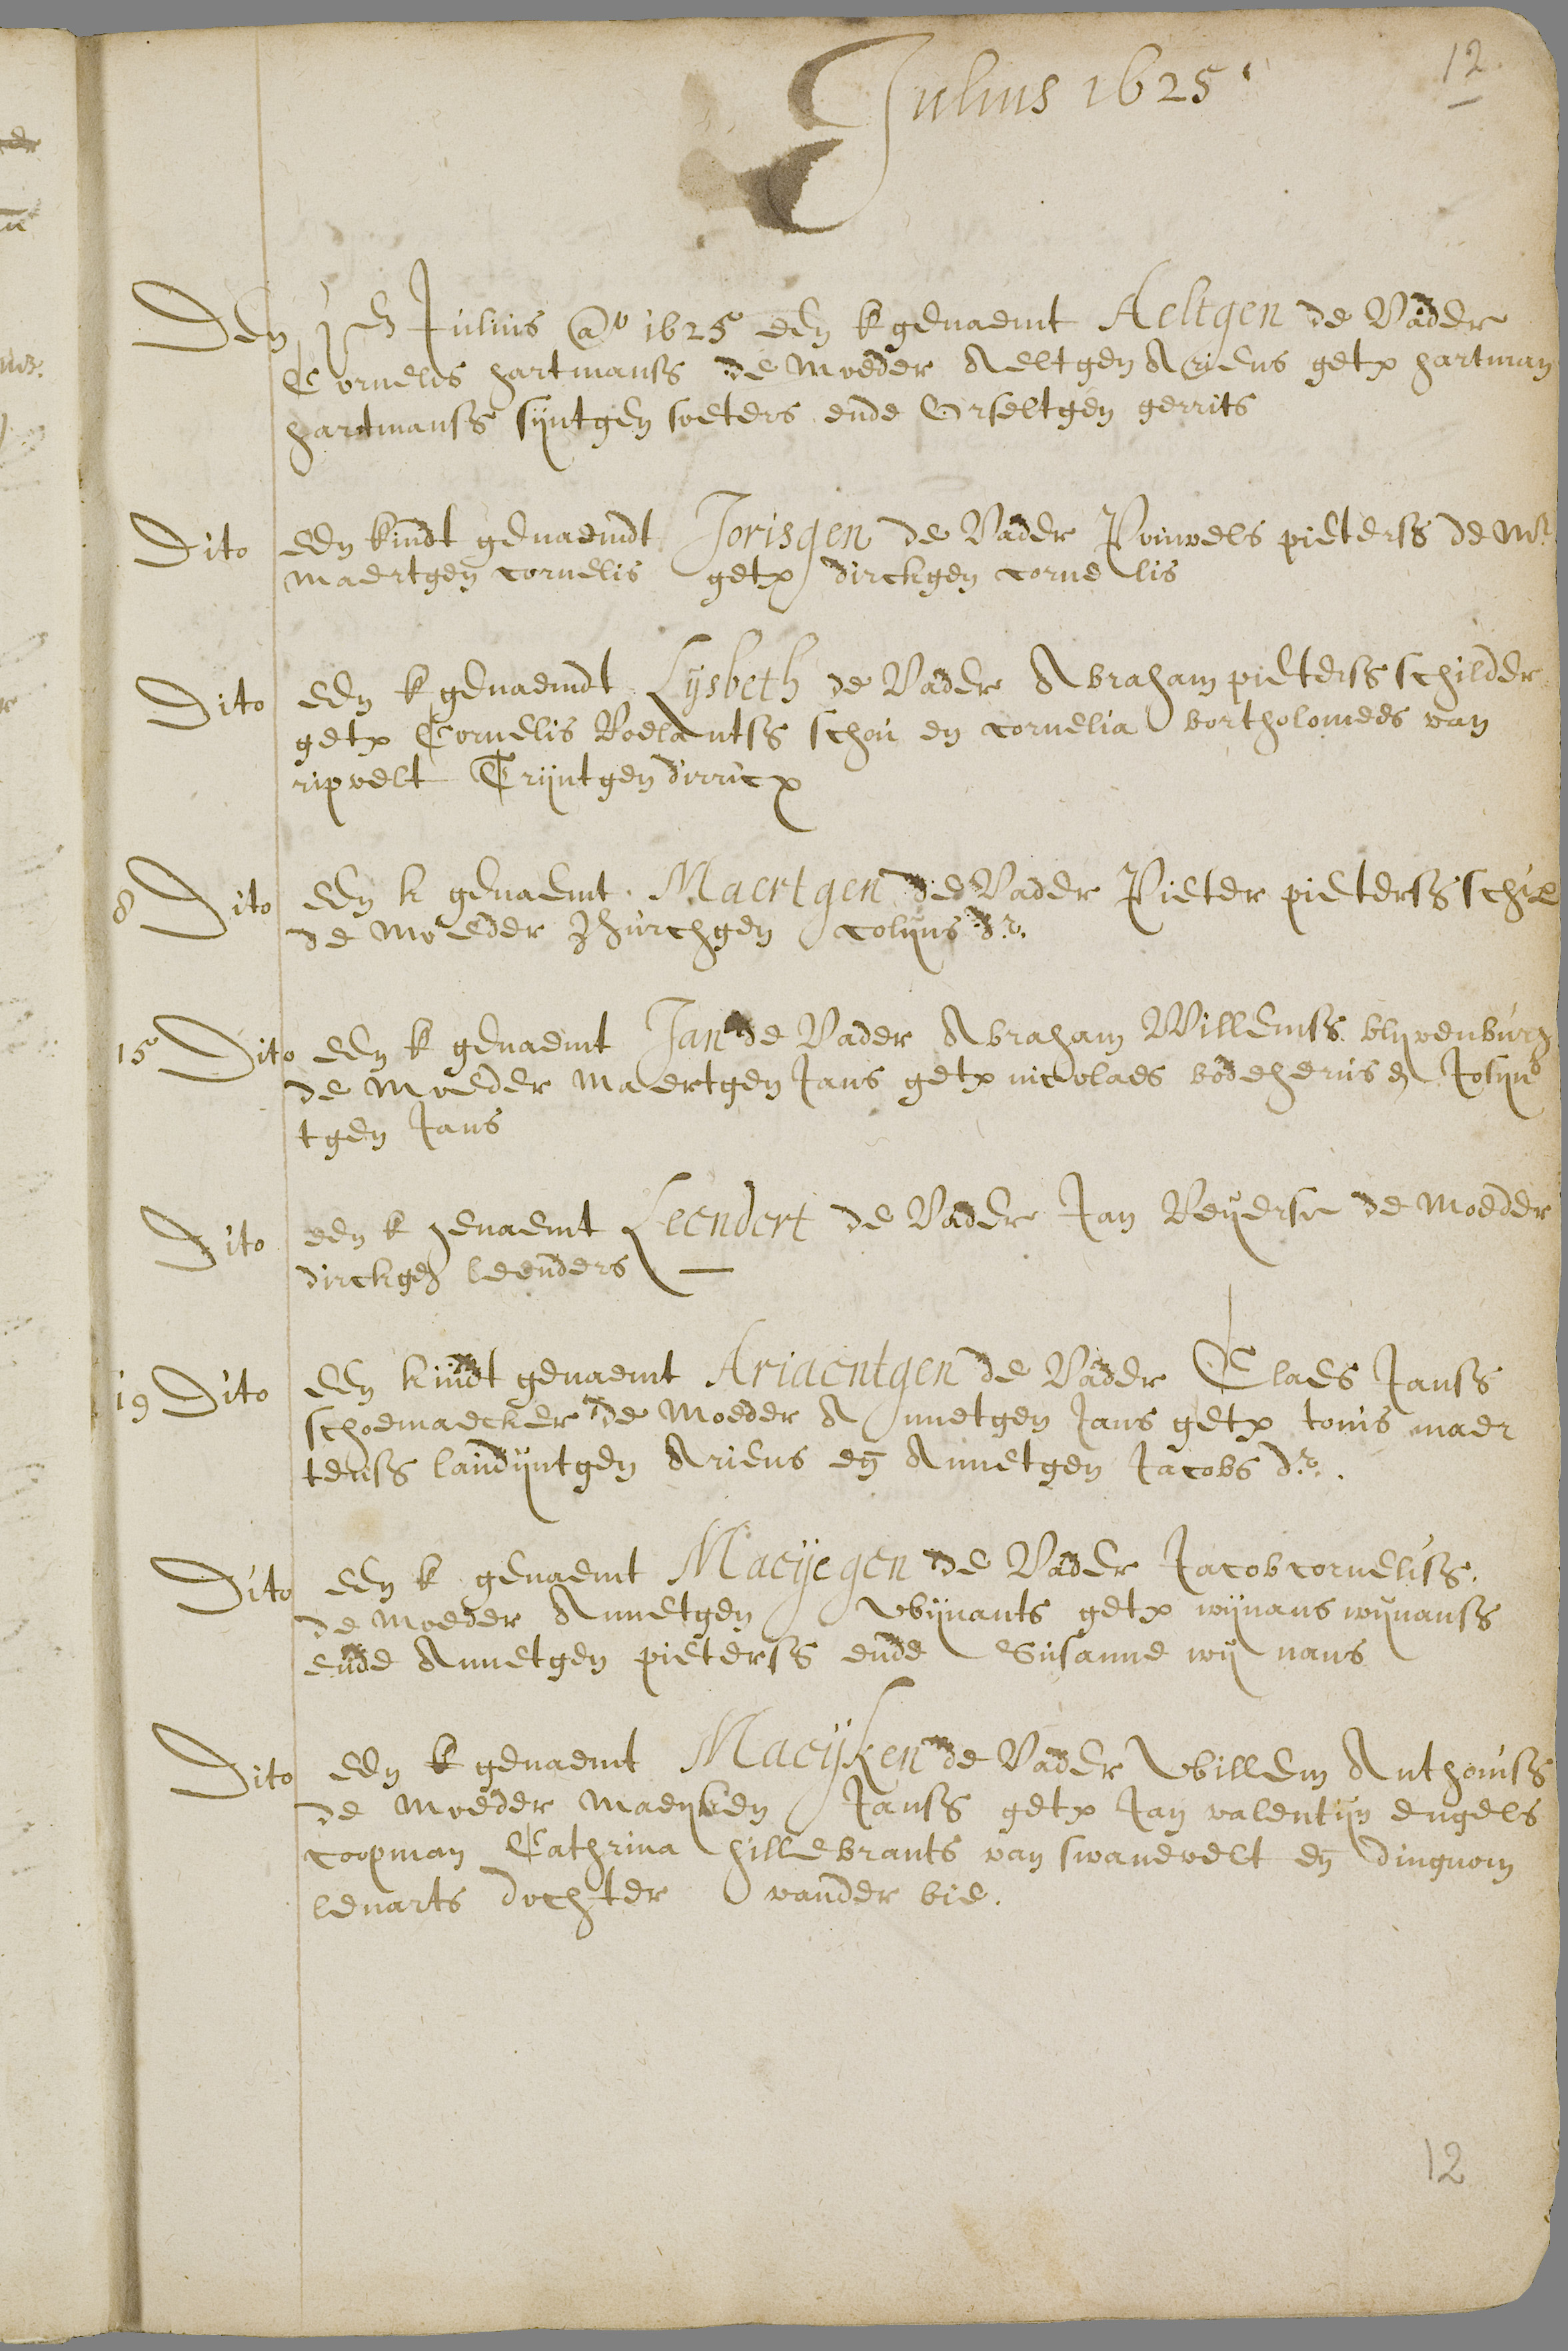 Julius 1625
12
Den jen Julius ao 1625 een k genaemt Aeltgen de Vader
Cornelis hartmanss de moeder Aeltgen Ariens getx hartman
hartmanss sijntgen soeters ende Orseltgen gerrits
Dito een kindt genaemdt Jorisgen de Vader Pouwels pieterss de mr
maertgen cornelis getx dirckgen cornelis
Dito een k genaemdt Lysbeth de Vader Abraham pieterss schilder
getx Cornelis Roelantss schou en cornelia bortholomees van
ripvelt Trijntgen dirricx
8 Dito een k genaemt Maertgen de Vader Pieter pieterss schil
de moeder colijns dr.
15 Dito een k genaemt Jan de Vader Abraham Willemss blijvenburg
de moeder maertgen Jans getx nicolaes bodeherus en Josijn
tgen Jans
Dito een k genaemt Leendert de Vader Jan Reijerse de moeder
dirckgen leenders
19 Dito een kindt genaemt Ariaentgen de Vader Claes Janss
schoemaecker de moeder Annetgen Jans getx tonis maer
tenss landijntgen Ariens en Annetgen Jacobs dr.
Dito een k genaemt Maeijegen de Vader Jacob corneliss.
de moeder Annetgen Wijnants getx wijnans wijnanss
ende Annetgen pieterss ende Susanne wijnans
Dito een k genaemt Maeijken de Vader Willem Anthoniss
de moeder maeijken Janss getx Jan valentijn engels
coopman Cathrina hillebrants van swanevelt en dingnom
lenarts dochter vander bie.
12